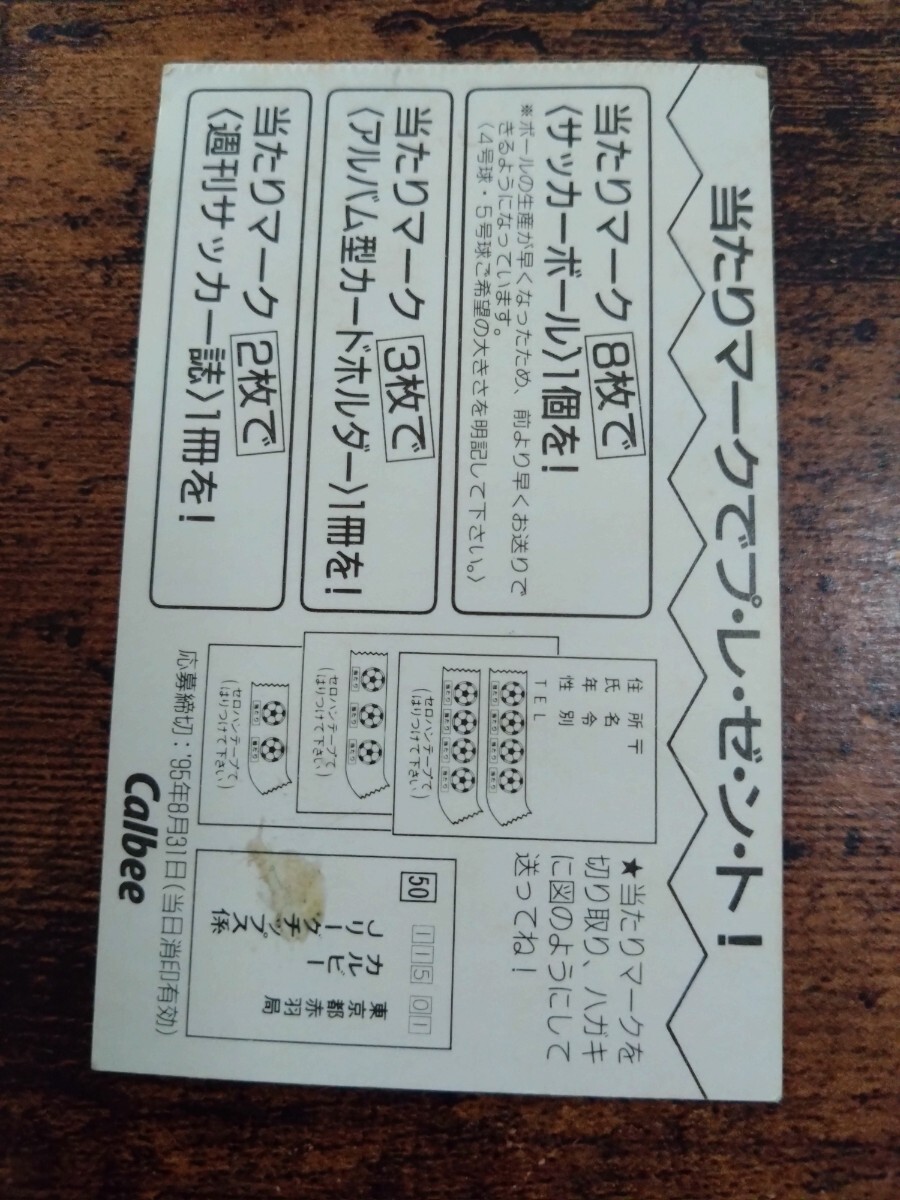 当たりマークでプ・レ・ゼ・ン・ト!
当たりマーク8枚で
〈サッカーボール〉1個を!
※ボールの生産が早くなったため、前より早くお送りで
きるようになっています。
〈4号球・5号球ご希望の大きさを明記して下さい。〉
当たりマーク3枚で
〈アルバム型カードホルダー〉1冊を!
当たりマーク2枚で
〈週刊サッカー誌〉1冊を!
住所〒
氏名
年令
性別
TEL
(セロハンテープで
はりつけて下さい)
(セロハンテープで
はりつけて下さい)
(セロハンテープで
はりつけて下さい)
★当たりマークを
切り取り、ハガキ
に図のようにして
送ってね!
50
11501
東京都赤羽局
カルビー
Jリーグチップス係
応募締切:'95年8月31日(当日消印有効)
Calbee